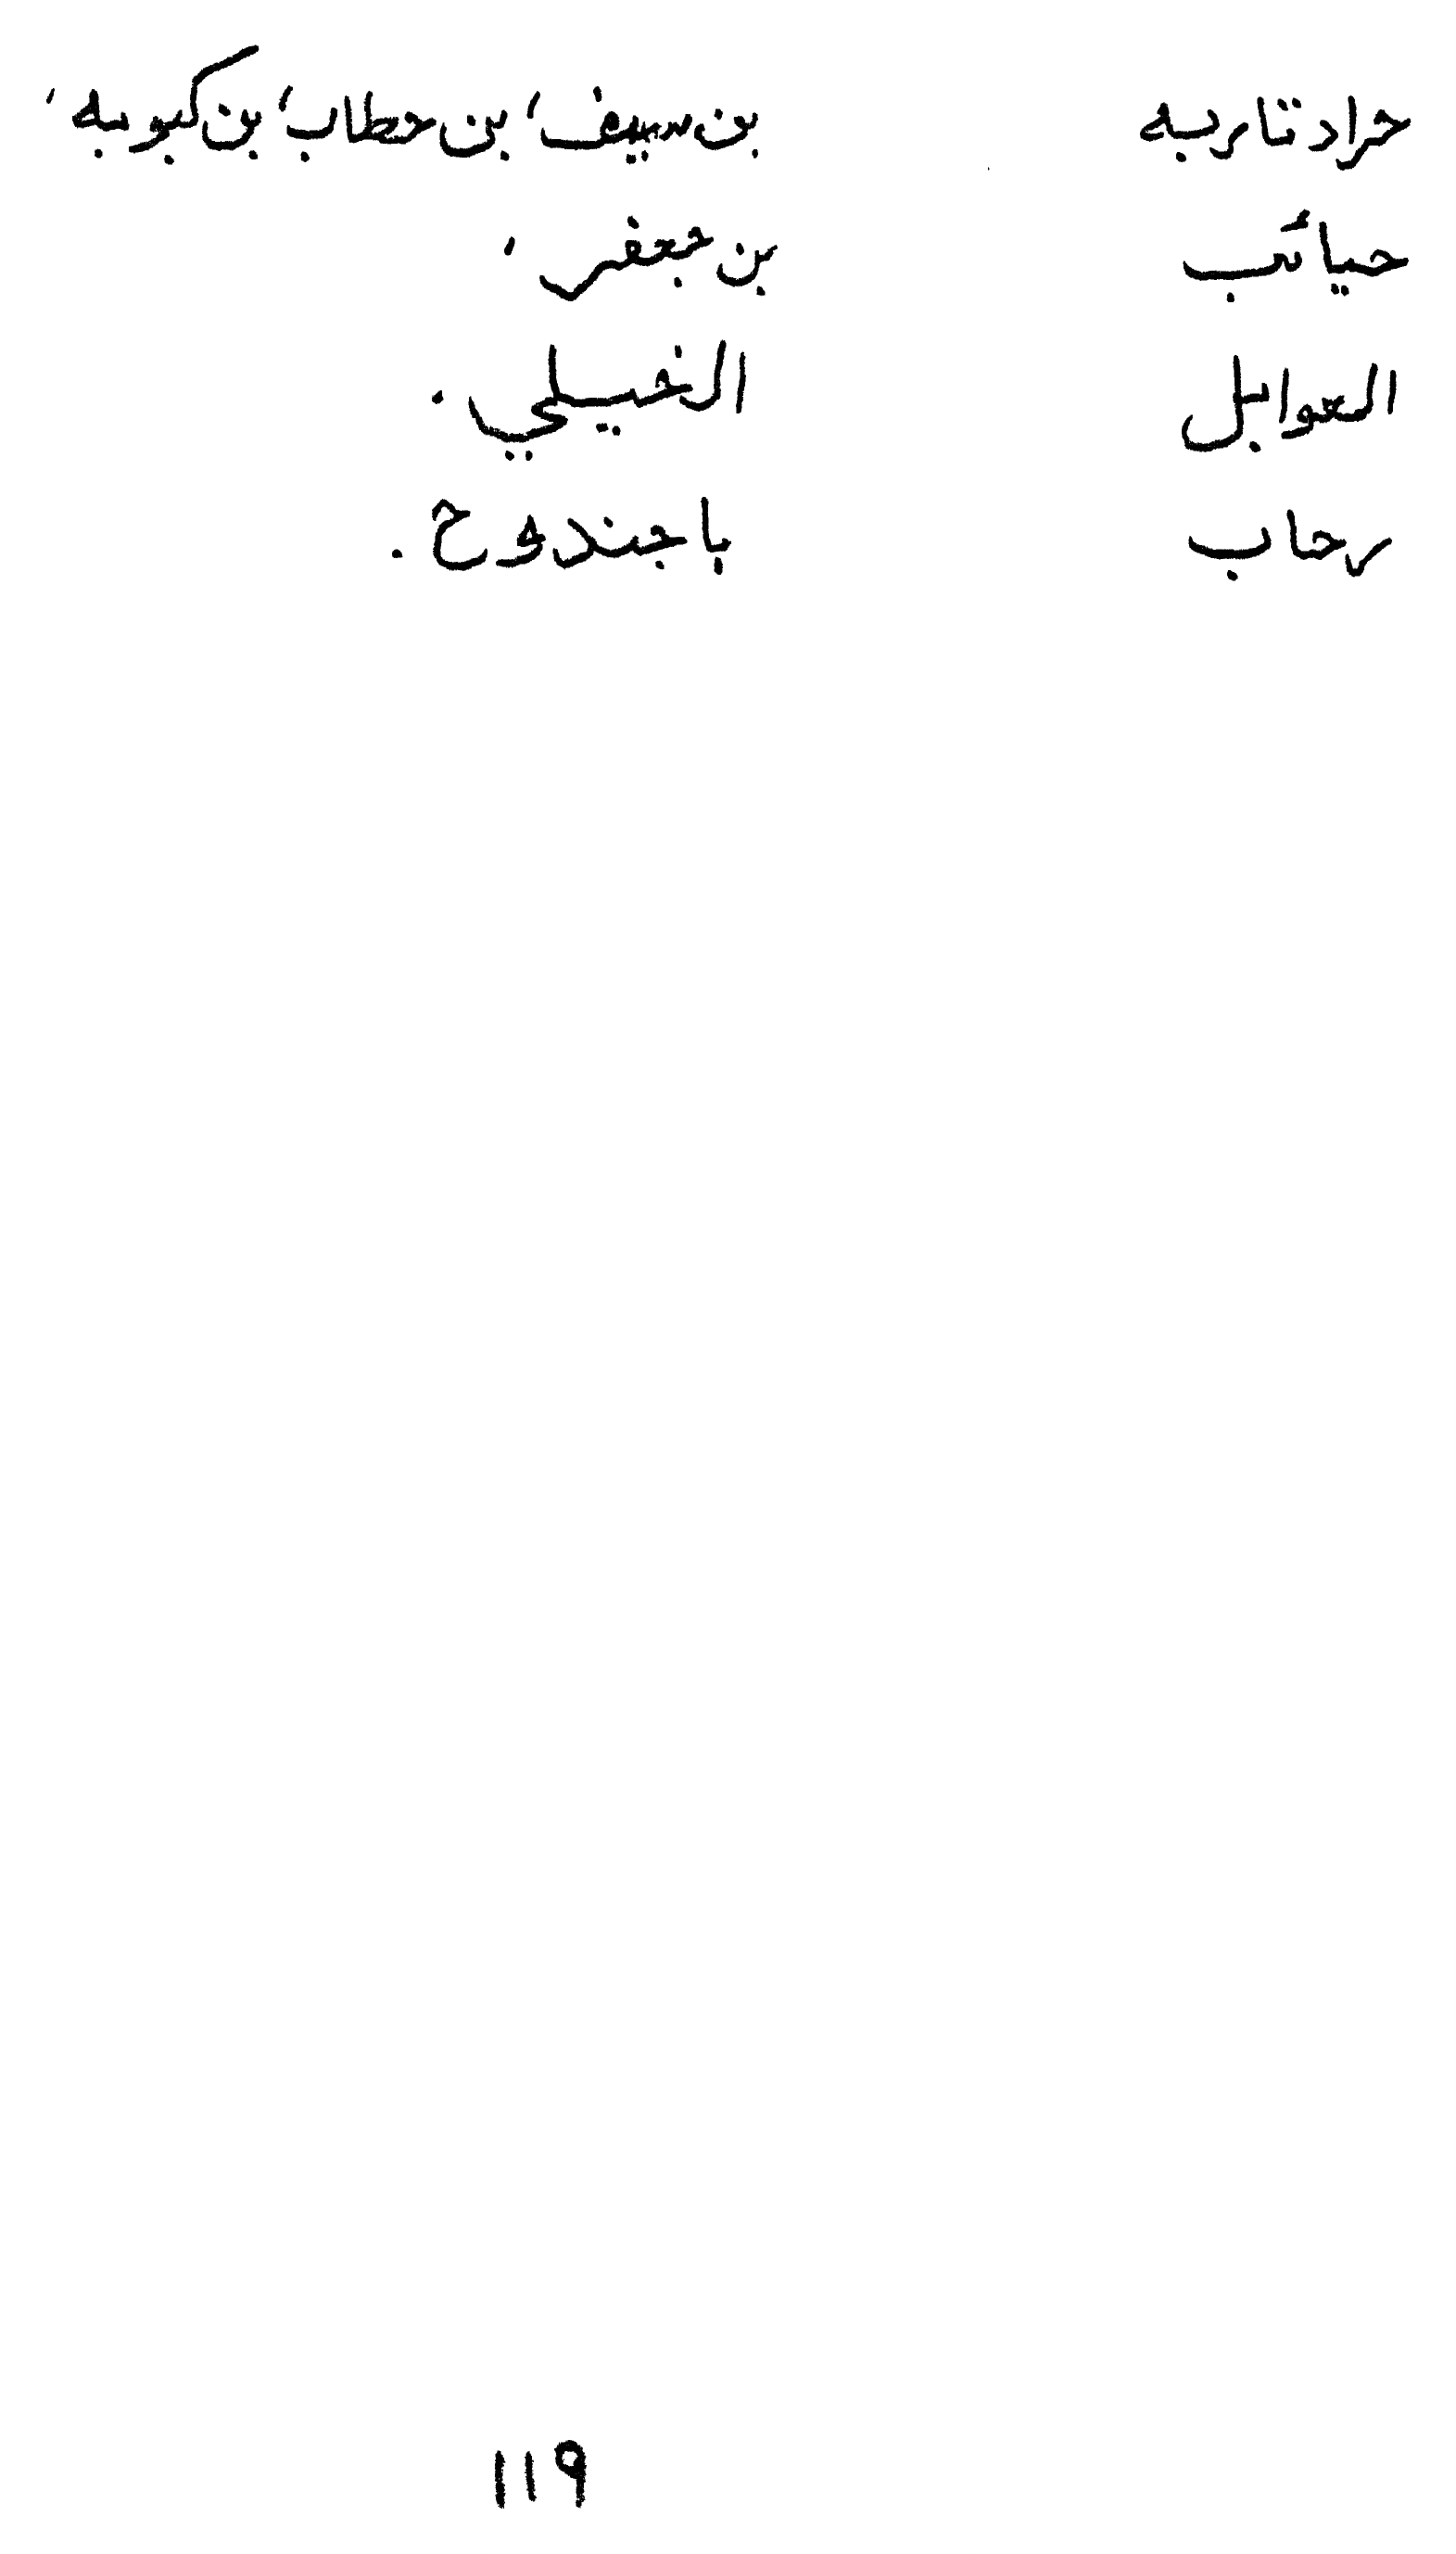 حراد تاربه بن سيف، بن حطاب، بن كبوبه،
حيائب بن جعفر،
العوابل الخييلي.
رحاب باجندوح.
١١٩